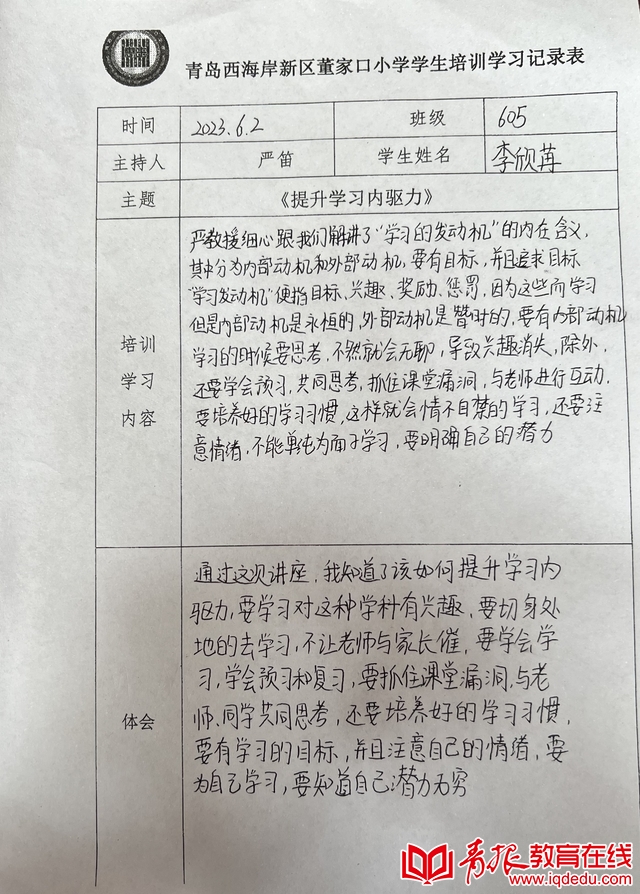 青岛西海岸新区董家口小学学生培训学习记录表
时间 2023.6.2 班级 605
主持人 严笛 学生姓名 李欣苒
主题 《提升学习内驱力》
培训
学习
内容
严教授细心跟我们解讲了“学习的发动机”的内在含义,
其中分为内部动机和外部动机,要有目标,并且追求目标
“学习发动机”便指目标、兴趣、奖励、惩罚,因为这些而学习
但是内部动机是永恒的,外部动机是暂时的,要有内部动机
学习的时候要思考,不然就会无聊,导致兴趣消失,除外,
还要学会预习,共同思考,抓住课堂漏洞,与老师进行互动.
要培养好的学习习惯,这样就会情不自禁的学习,还要注
意情绪,不能单纯为面子学习,要明确自己的潜力
体会
通过这次讲座,我知道了该如何提升学习内
驱力,要学习对这种学科有兴趣,要切身处
地的去学习,不让老师与家长催,要学会学
习,学会预习和复习,要抓住课堂漏洞,与老
师、同学共同思考,还要培养好的学习习惯,
要有学习的目标,并且注意自己的情绪,要
为自己学习,要知道自己潜力无穷
青报教育在线
www.iqdedu.com